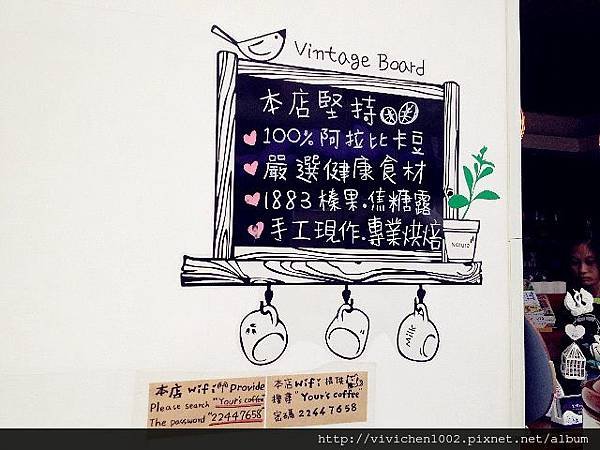 Vintage Board
本店堅持
100%阿拉比卡豆
嚴選健康食材
1883榛果.焦糖露
手工現作.專業烘焙
NATURE
Milk
本店 Wifi Provide
Please search "Your's coffee"
The password "22447658"
本店 Wifi 提供
搜尋 "Your's coffee"
密碼 22447658
http://vivichen1002.pixnet.net/album